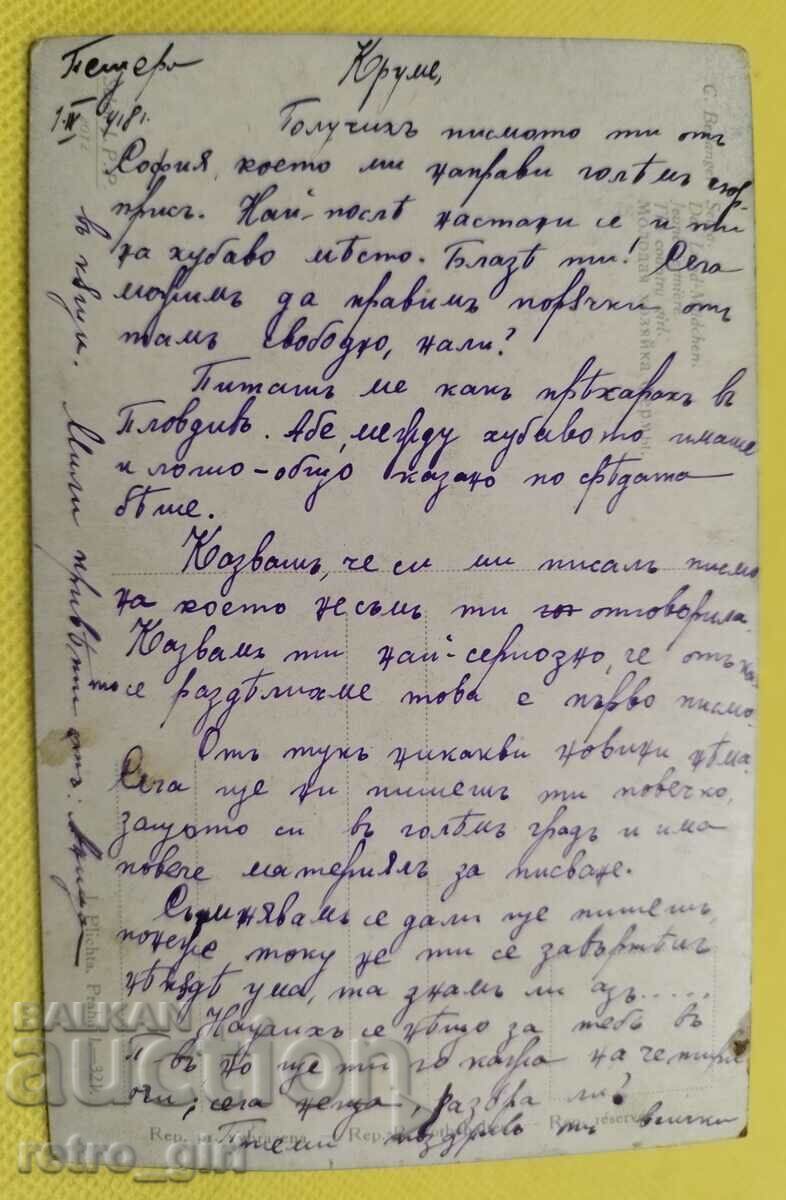 Пещера
Круме,
1.IV 918 г.
Получихъ писмото ти отъ
София, което ми направи голѣмъ сюр-
присъ. Най-послѣ настани се и ти
на хубаво мѣсто. Блазѣ ти! Сега
можимъ да правимъ поръчки отъ
тамъ свободно, нали?
Питашъ ме какъ прѣкарахъ въ
Пловдивъ. Абе, между хубавото имаше
и лошо-общо казано по срѣдата
бѣше.
Казвашъ, че си ми писалъ писмо
на което несъмъ ти отговорила.
Казвамъ ти най-сериозно, че отъ ка-
то се раздѣлихме това е първо писмо.
Отъ тукъ никакви новини нѣма.
Сега ще ни пишешъ ти повечко,
защото си въ голѣмъ градъ и има
повече материялъ за писване.
Съмнявамъ се дали ще пишешъ,
понеже току не ти се завъртѣлъ
нѣкъдѣ ума, та знамъ ли азъ......
Научихъ се нѣщо за тебъ въ
П-въ но ще ти го кажа на четири
очи; сега неща, разбра ли?
поздравъ на всички
въ кѫщи. Мили привѣти отъ:
C. Benanger
I. Plichta, Praha I.-321.
Rep. réservée
BALKAN
auction
retro_girl